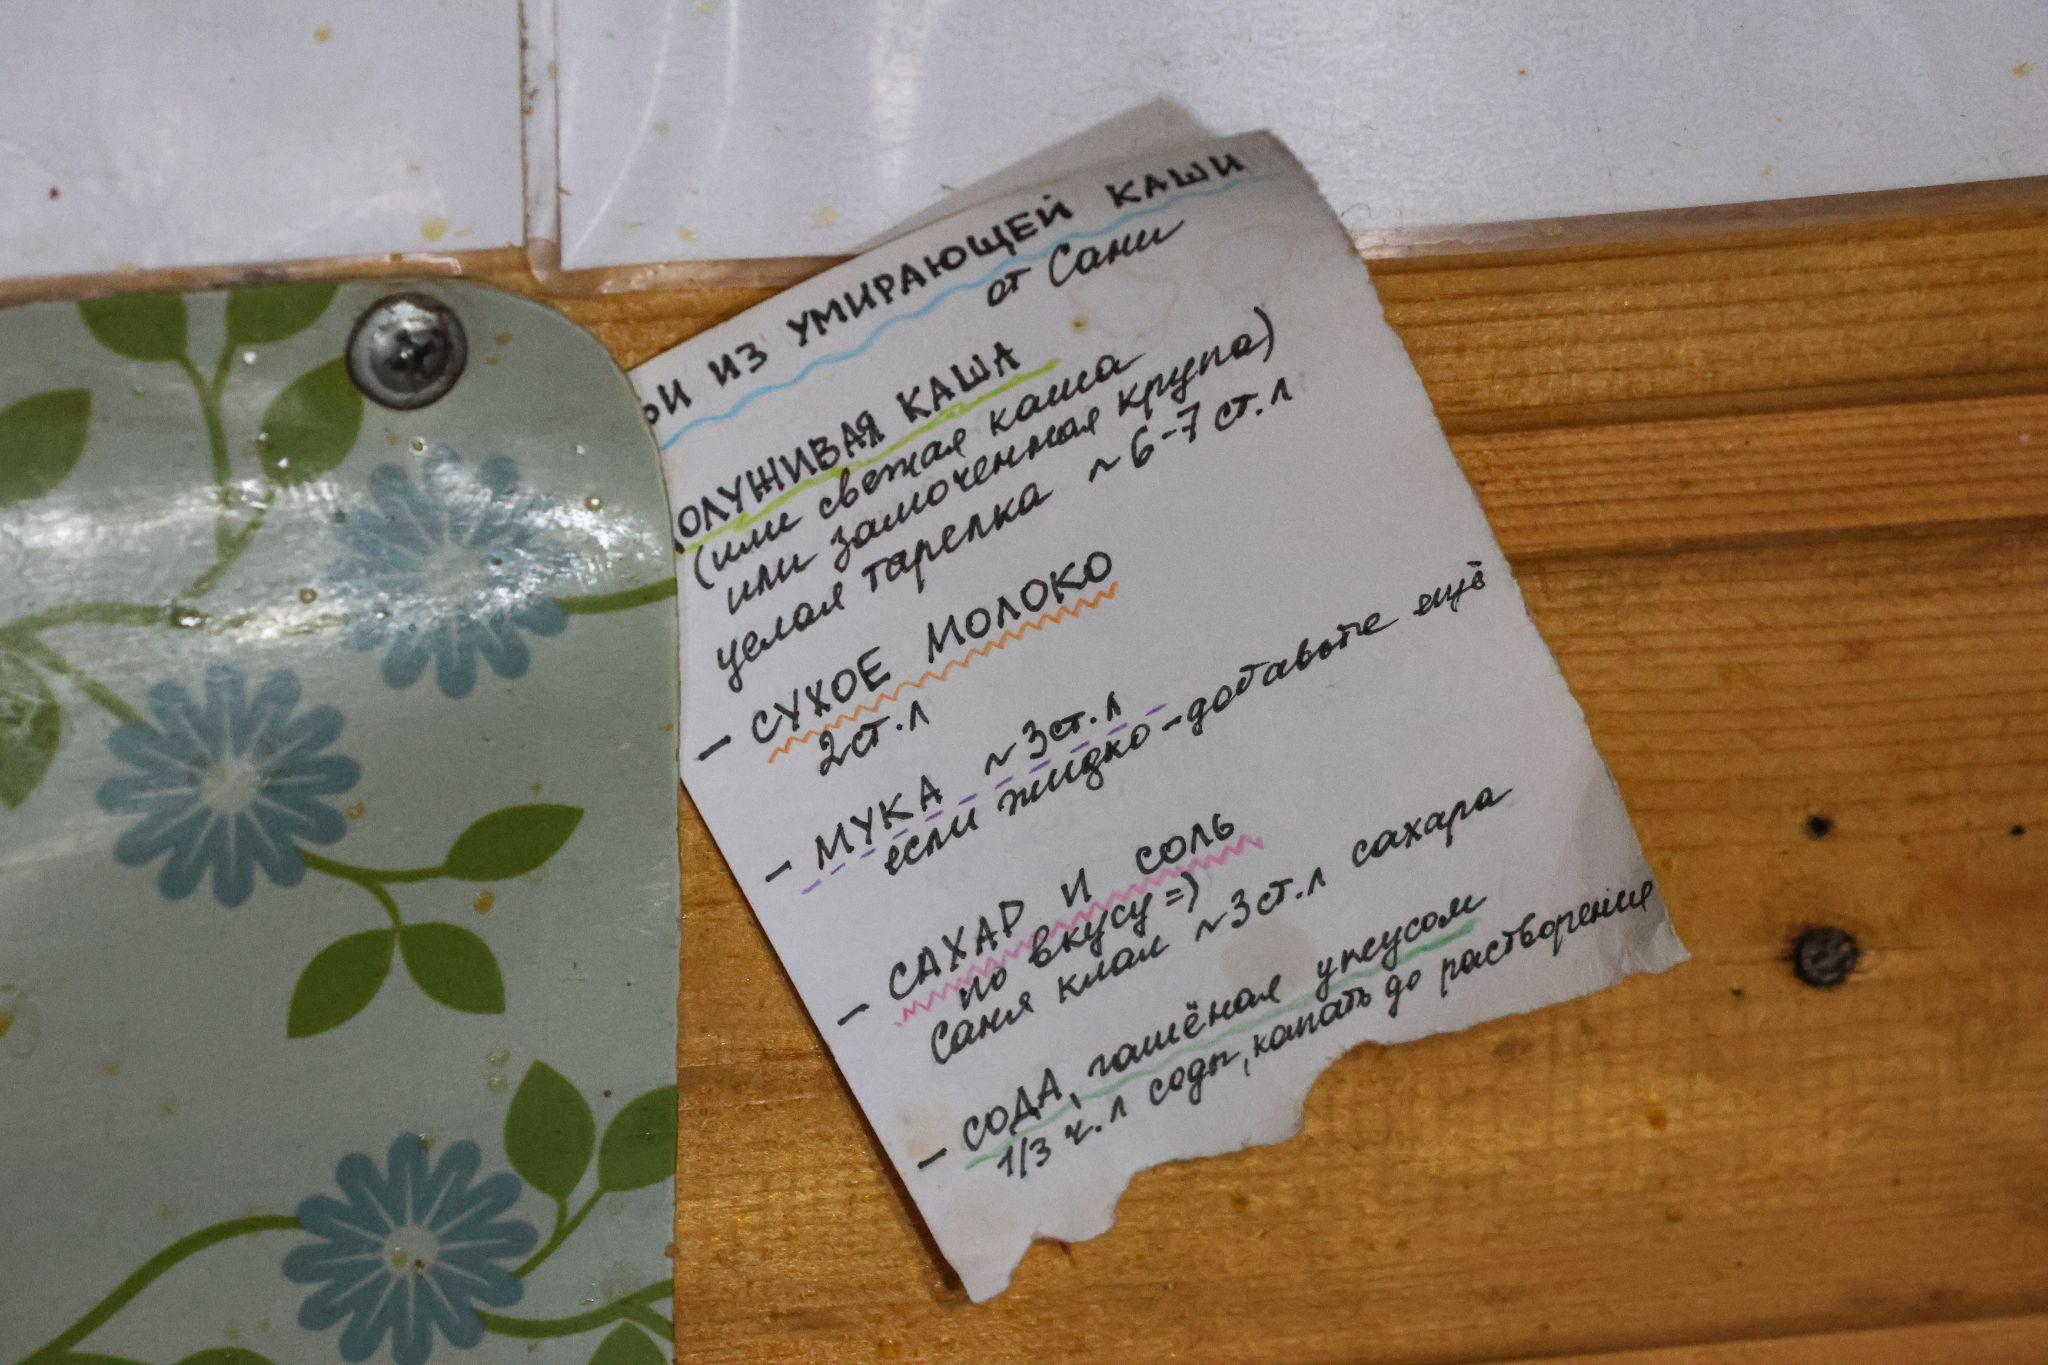 ЬИ ИЗ УМИРАЮЩЕЙ КАШИ
от Сани
ОЛУЖИВАЯ КАША
(или свежая каша
или замоченная крупа)
целая тарелка ~ 6-7 ст.л
- СУХОЕ МОЛОКО
2 ст.л
- МУКА ~ 3 ст.л
если жидко - добавьте ещё
- САХАР И СОЛЬ
по вкусу =)
Саня клал ~ 3 ст.л сахара
- СОДА, гашёная уксусом
1/3 ч.л соды, капать до растворения